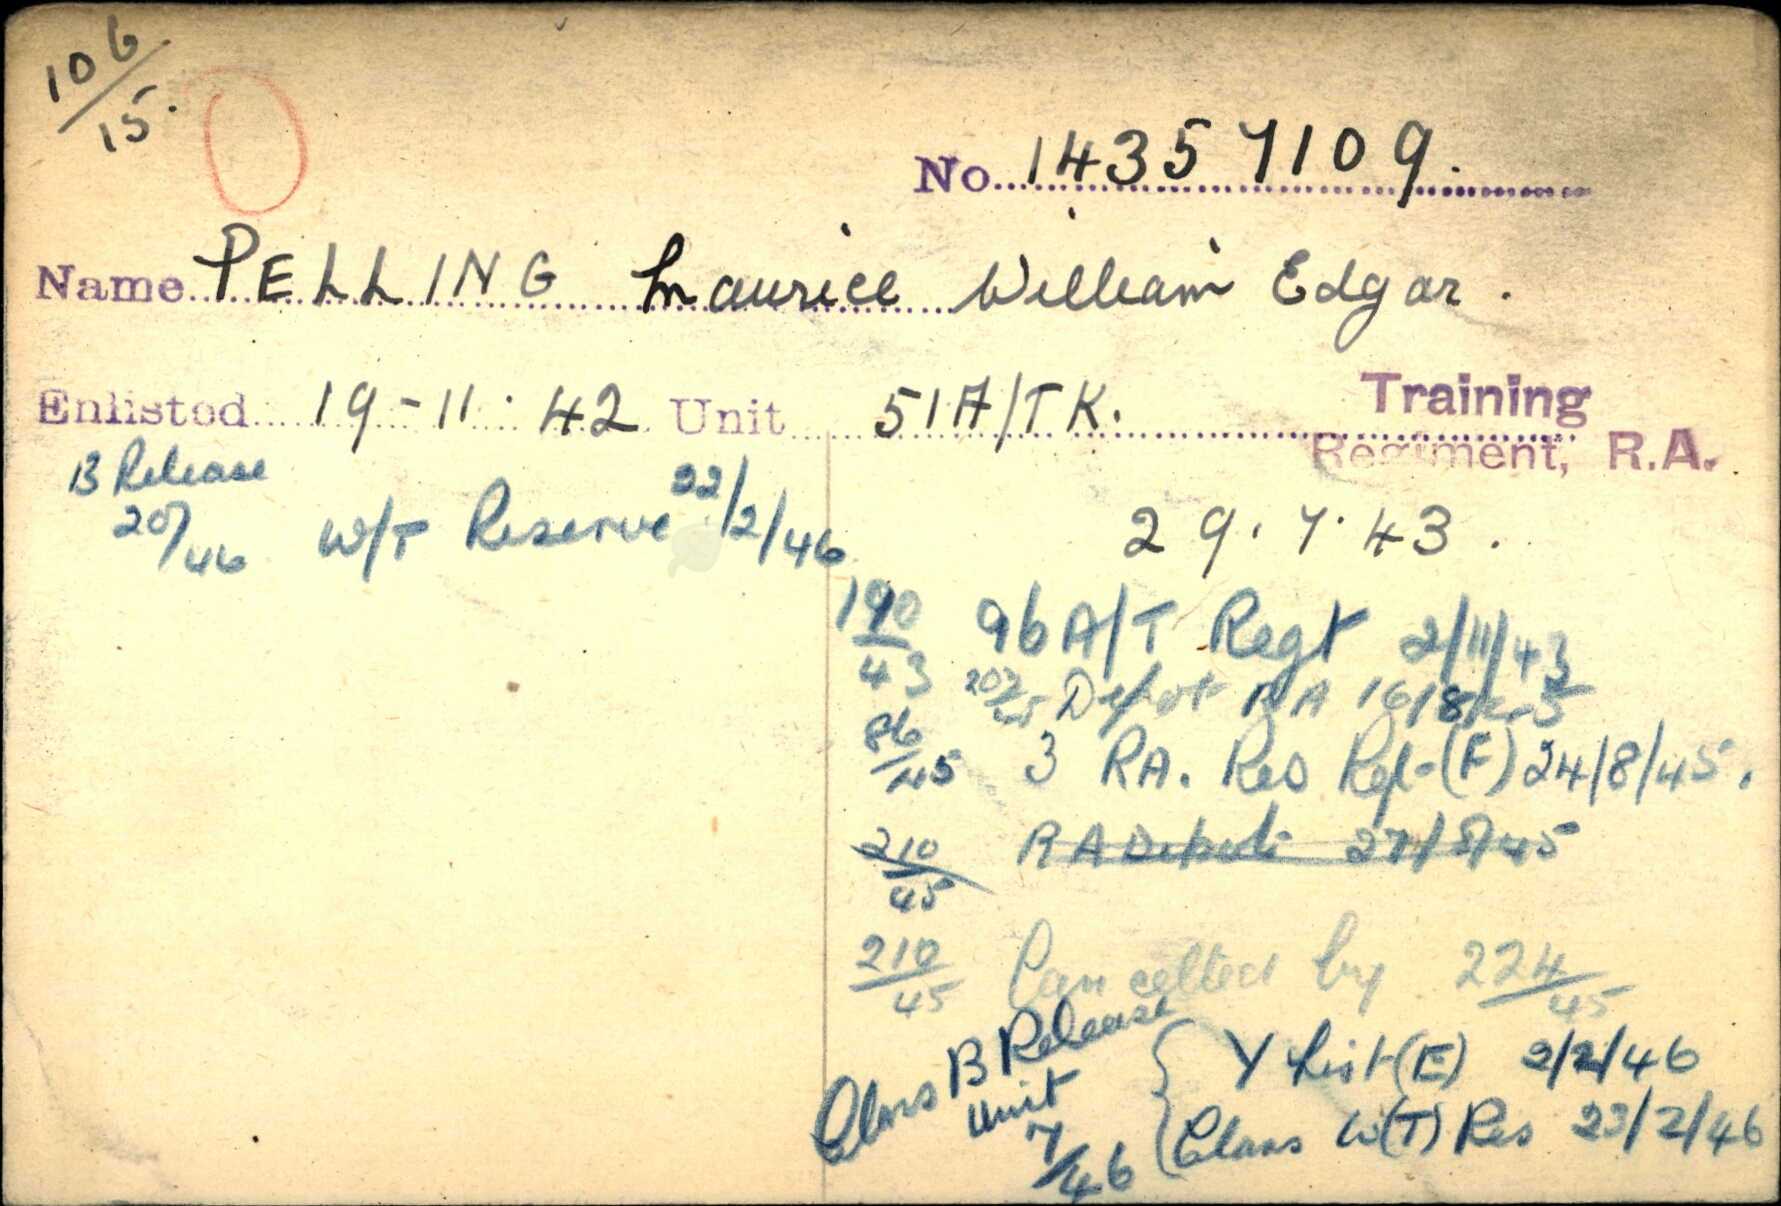 106/15.
No. 14357109.
Name PELLING Maurice William Edgar.
Enlisted 19-11-42 Unit 51 A/TK. Training Regiment, R.A.
B Release 20/46 W/T Reserve 22/2/46
29.7.43.
190/43 96 A/T Regt 2/11/43
202/45 Depot RA 16/8/45
86/45 3 RA. Res Regt (F) 24/8/45.
210/45 RA Depot 27/8/45
210/45 Cancelled by 224/45
Class B Release Unit 7/46 { Y List (E) 2/2/46
Class W(T) Res 23/2/46